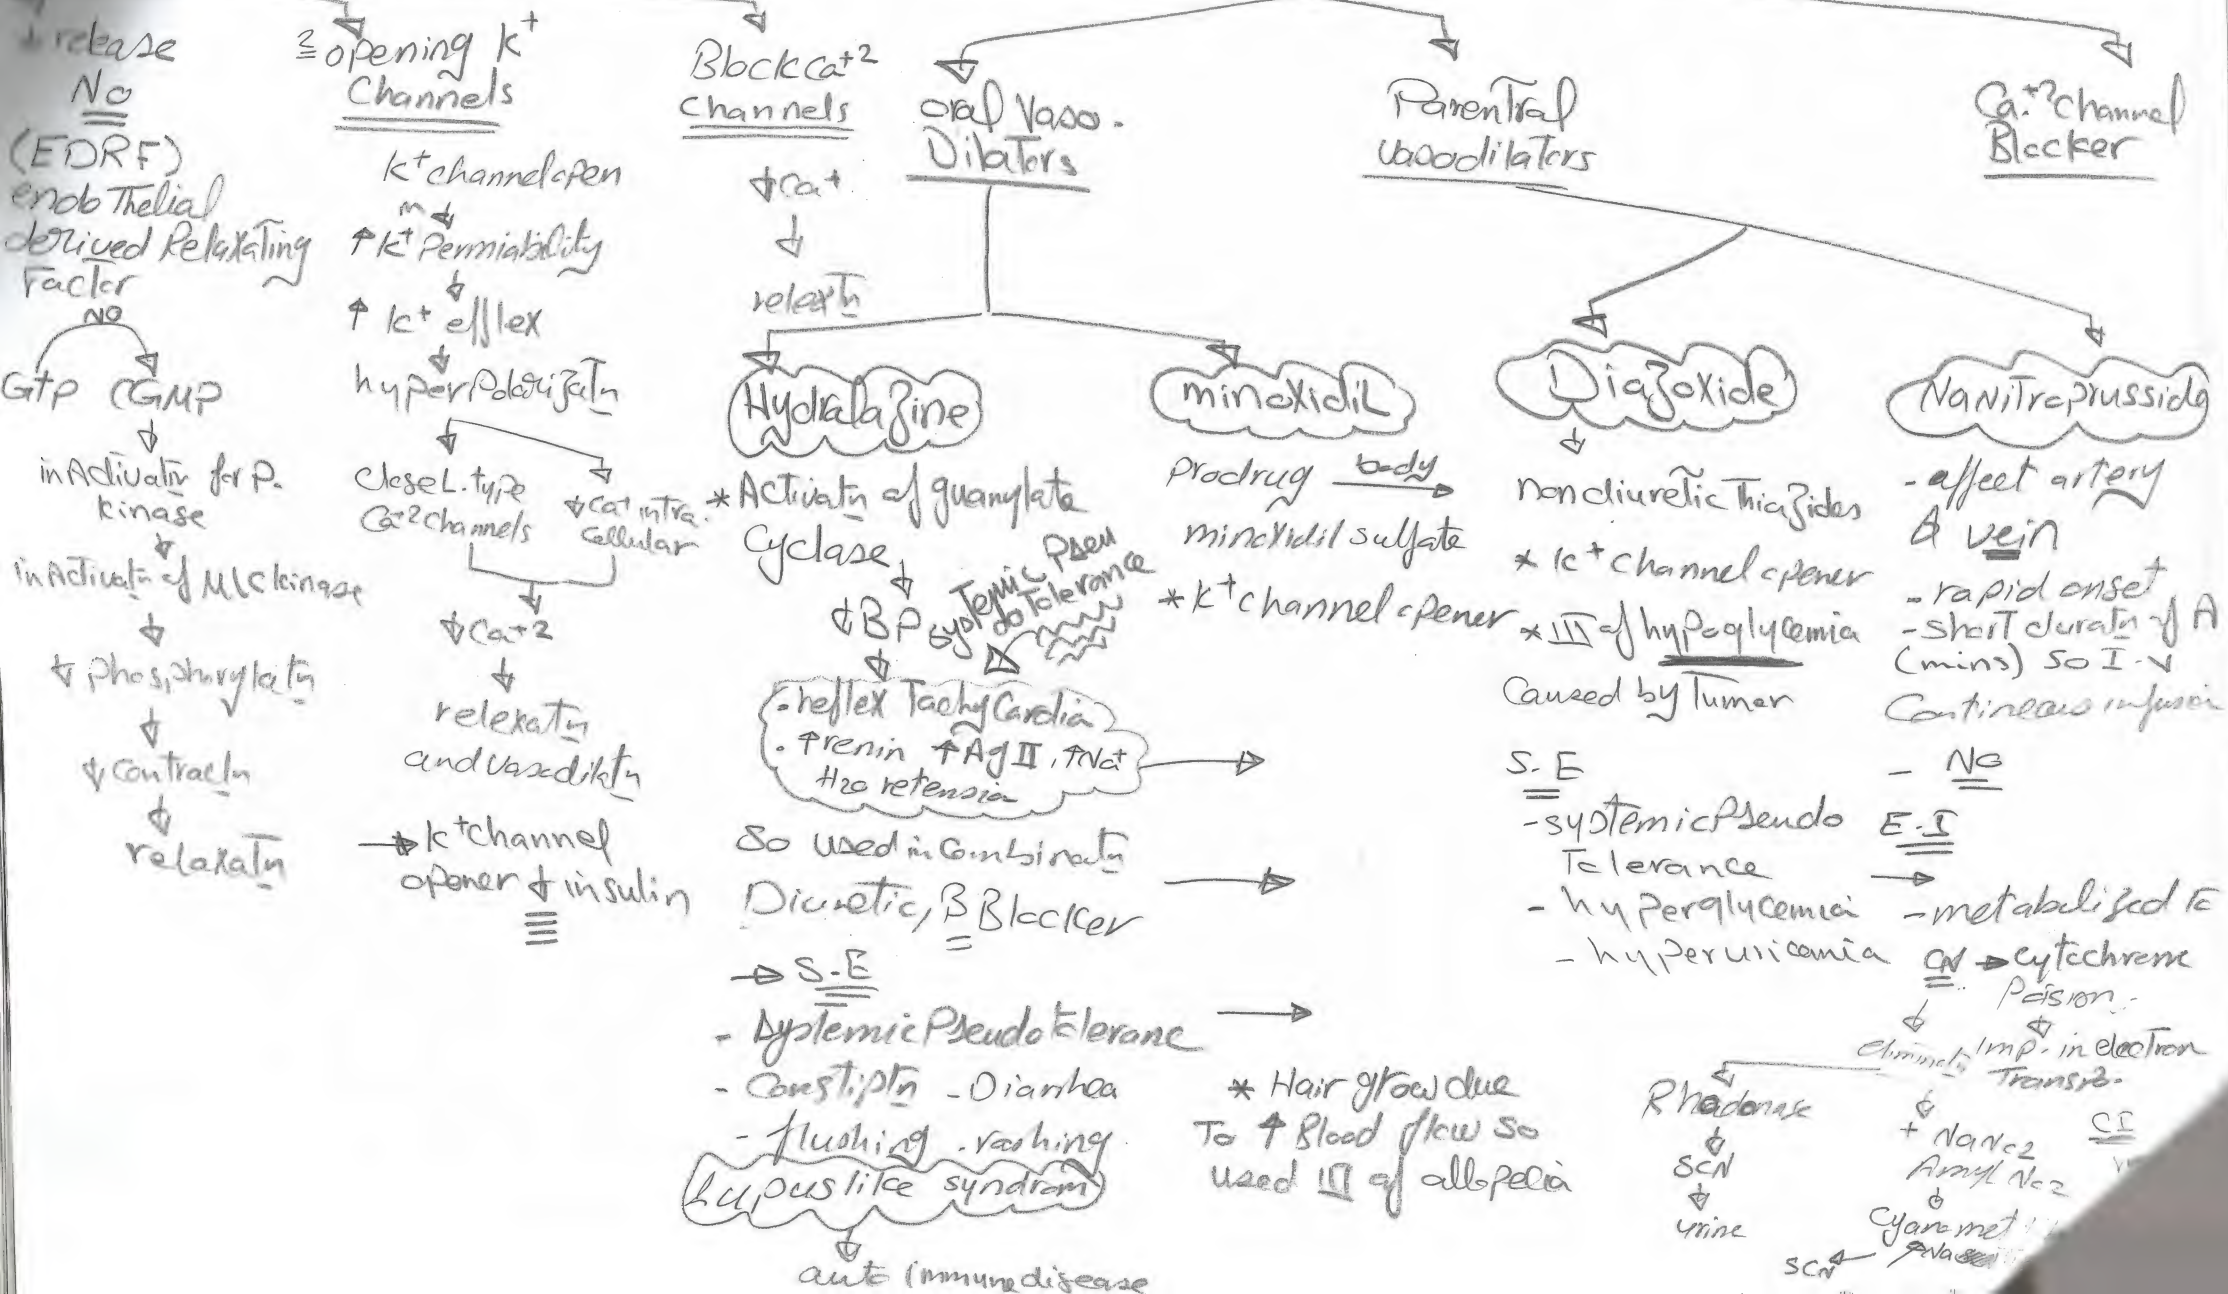 release
No
(EDRF)
endothelial
derived Relaxating
Factor
NO
Gtp CGMP
inActivatn for P.
kinase
inActivatn of MLC kinase
↓ phosphorylatn
↓ contractn
relaxatn
2 opening K+
Channels
K+ channel open
↑ K+ Permiability
↑ K+ efflex
hyperPolarizatn
Close L. type
Ca+2 channels
↓ Ca+ intra.
Cellular
↓ Ca+2
relexatn
and vasodilatn
→ K+ channel
opener ↓ insulin
Block Ca+2
Channels
↓ Ca+
relaxtn
oral Vaso.
Dilators
Hydralazine
* Activatn of guanylate
Cyclase
↓ BP
systemic pseu
do tolerance
. reflex TachyCardia
. ↑renin ↑Ag II, ↑Na+
H2o retension
So used in Combinatn
Diuretic, B Blocker
→ S.E
- systemic Pseudo toleranc
- Constiptn - Diarrhea
- flushing . rashing
Lupus like syndrom
auto immune disease
minoxidil
Prodrug body →
minoxidil sulfate
* K+ channel opener
* Hair grow due
To ↑ Blood flow so
used III of allopecia
Parentral
vasodilators
Diazoxide
non diuretic Thiazides
* K+ channel opener
* III of hypoglycemia
Caused by Tumor
S.E
- systemic Pseudo
Tolerance
- hyperglycemia
- hyperuricemia
NaNitroprusside
- affect artery
& vein
- rapid onset
- short duratn of A
(mins) so I.V
Contineous infusion
- NO
E.I
- metabolized to
CN → Cytochrome
Poision
Imp. in electron
Trans
eliminatn
Rhodonase
SCN
urine
+ NaNo2
Amyl No2
Cyanomet
SCN
CI
Ca+2 channel
Blocker